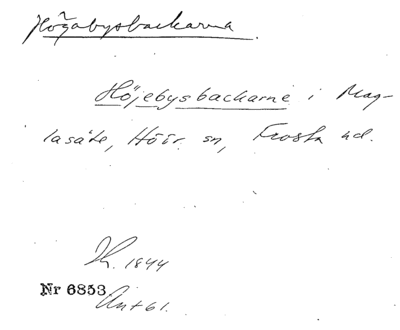 Högabysbackarna.
Höjebysbackarne i Mag-
lasäte, Höör. sn, Frosta hd.
Th. 1844
Nr 6853.
Ant 61.